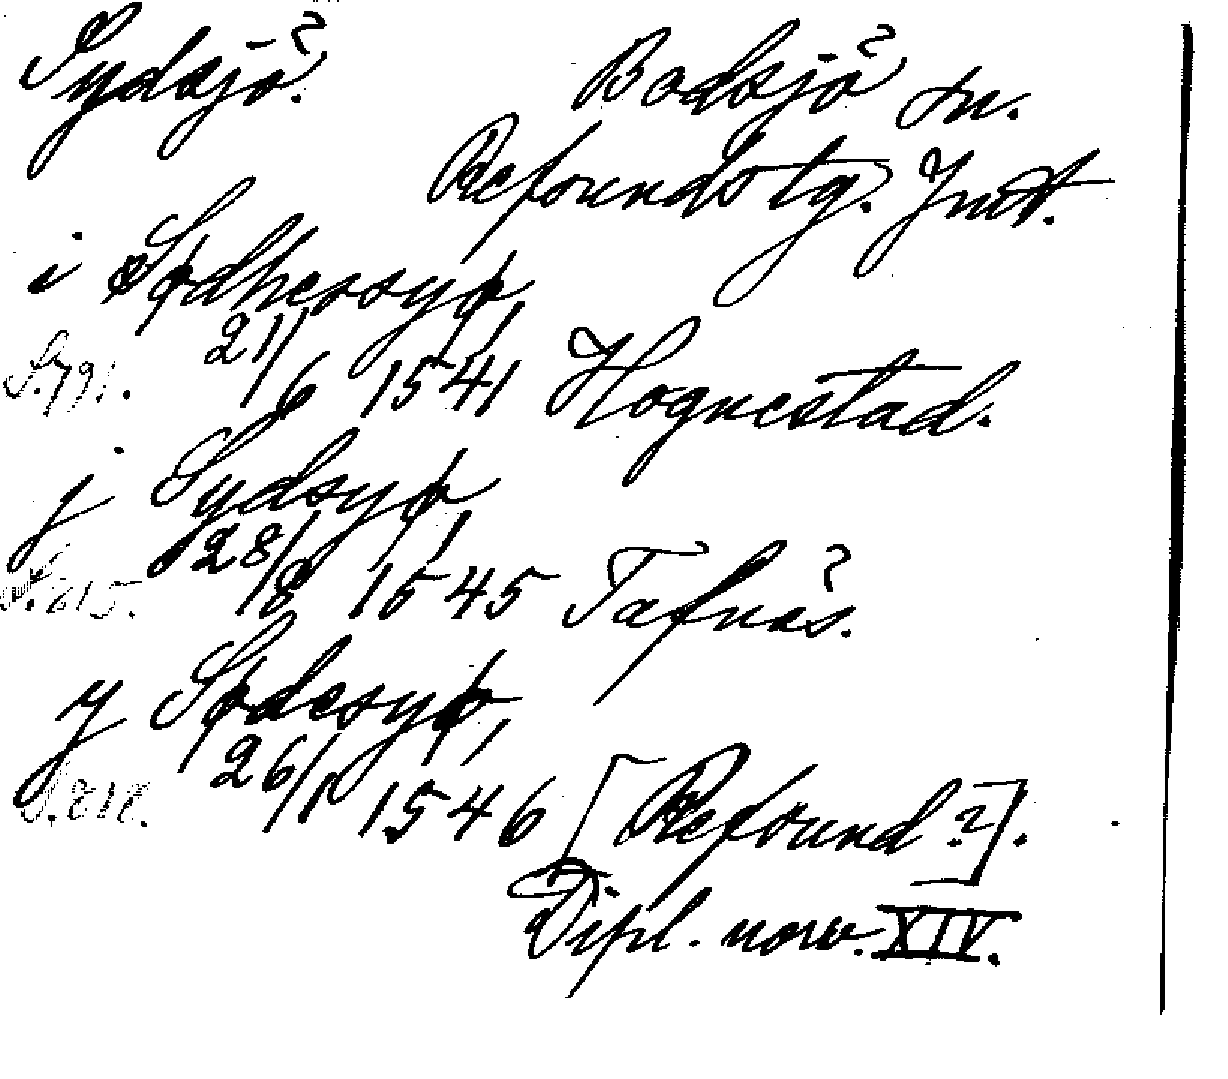 Sydsjö. Bodsjö sn.
Refsundstg. Jmt.
i Spdhessyp,
S.791. 21/6 1541 Hognestad.
j Sydsyp,
S.815. 28/8 1545 Tafnäs.
y Spdesyp,
S.818. 26/1 1546 [Refsund?].
Dipl. norv. XIV.